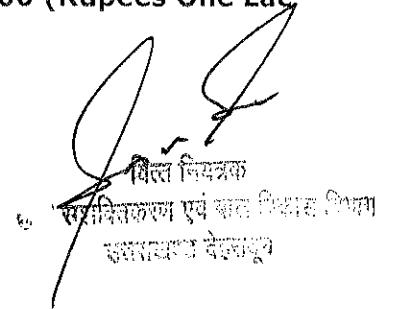 00 (Rupees One Lac
वित्त नियंत्रक
सशक्तिकरण एवं बाल विकास विभाग
उत्तराखण्ड देहरादून